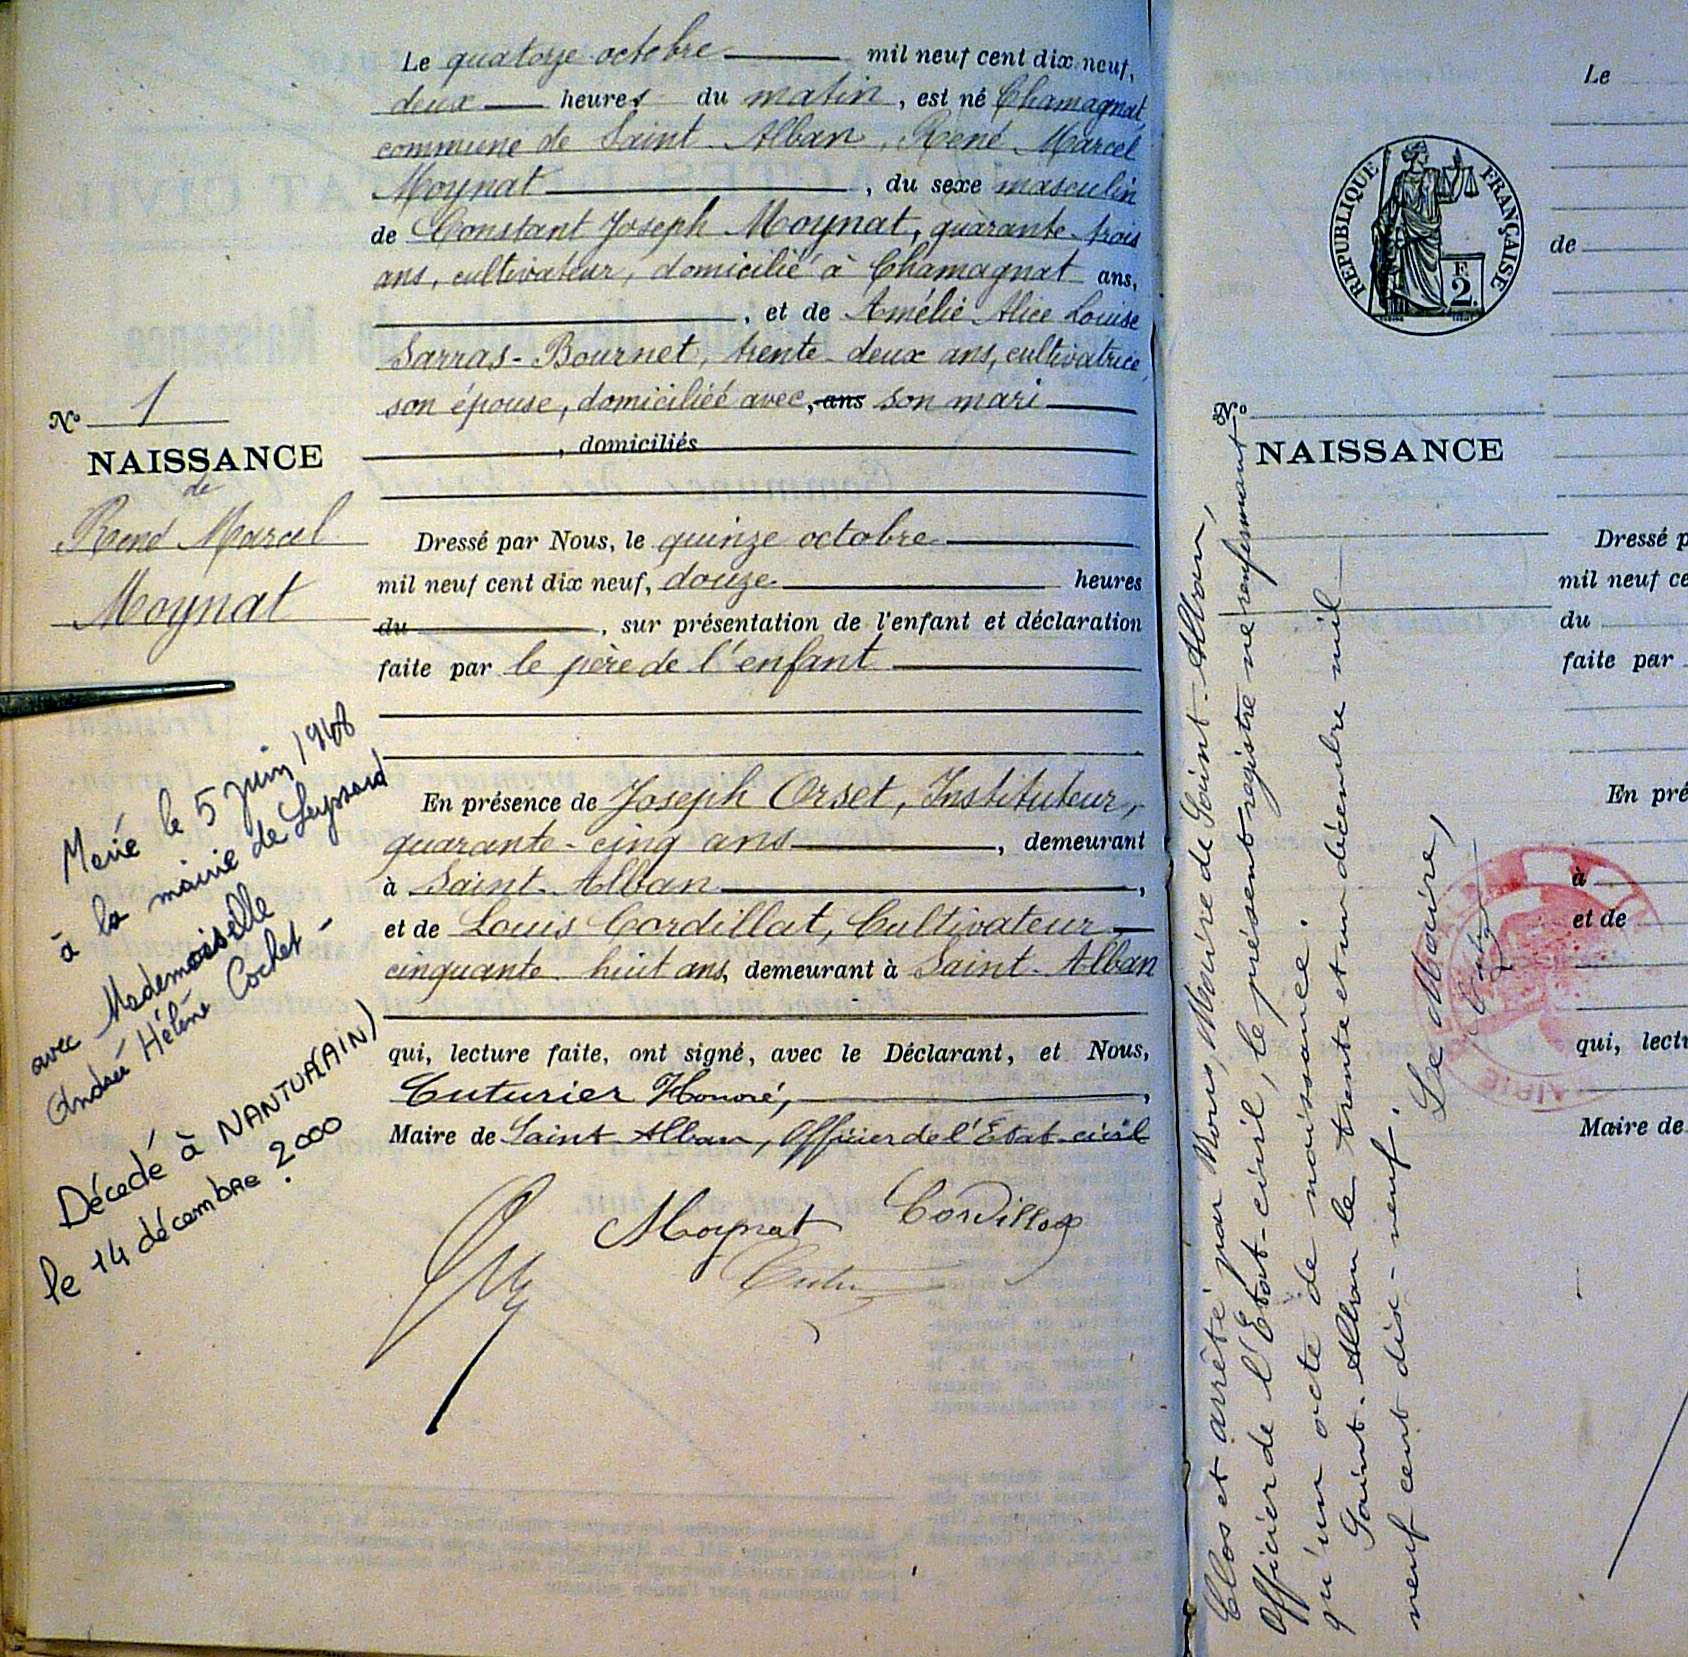 Le quatorze octobre mil neuf cent dix neuf,
deux heures du matin, est né Chamagnat,
commune de Saint-Alban, René Marcel
Moynat, du sexe masculin
de Constant Joseph Moynat, quarante-trois
ans, cultivateur, domicilié à Chamagnat ans,
, et de Amélie Alice Louise
Sarras-Bournet, trente-deux ans, cultivatrice,
son épouse, domiciliée avec, ans son mari
, domiciliés
N° 1
NAISSANCE
de
René Marcel
Moynat
Dressé par Nous, le quinze octobre
mil neuf cent dix neuf, douze heures
du , sur présentation de l'enfant et déclaration
faite par le père de l'enfant
En présence de Joseph Orset, Instituteur,
quarante-cinq ans, demeurant
à Saint-Alban,
et de Louis Cordillat, Cultivateur
cinquante-huit ans, demeurant à Saint-Alban
qui, lecture faite, ont signé, avec le Déclarant, et Nous,
Cuturier Honoré,
Maire de Saint Alban, Officier de l'Etat-civil
Moynat Cordillat
Marié le 5 juin 1948
à la mairie de Leyssard
avec Mademoiselle
Andrée Hélène Cochet -
Décédé à NANTUA (AIN)
le 14 décembre 2000.
RÉPUBLIQUE FRANÇAISE
F.
2.
N°
NAISSANCE
Clos et arrêté par Nous, Maire de Saint-Alban,
Officier de l'Etat-civil, le présent registre ne renfermant
qu'un acte de naissance.
Saint-Alban le trente et un décembre mil
neuf cent dix-neuf.
Le Maire,
Le
de
Dressé p
mil neuf ce
du
faite par
En pré
à
et de
qui, lectu
Maire de